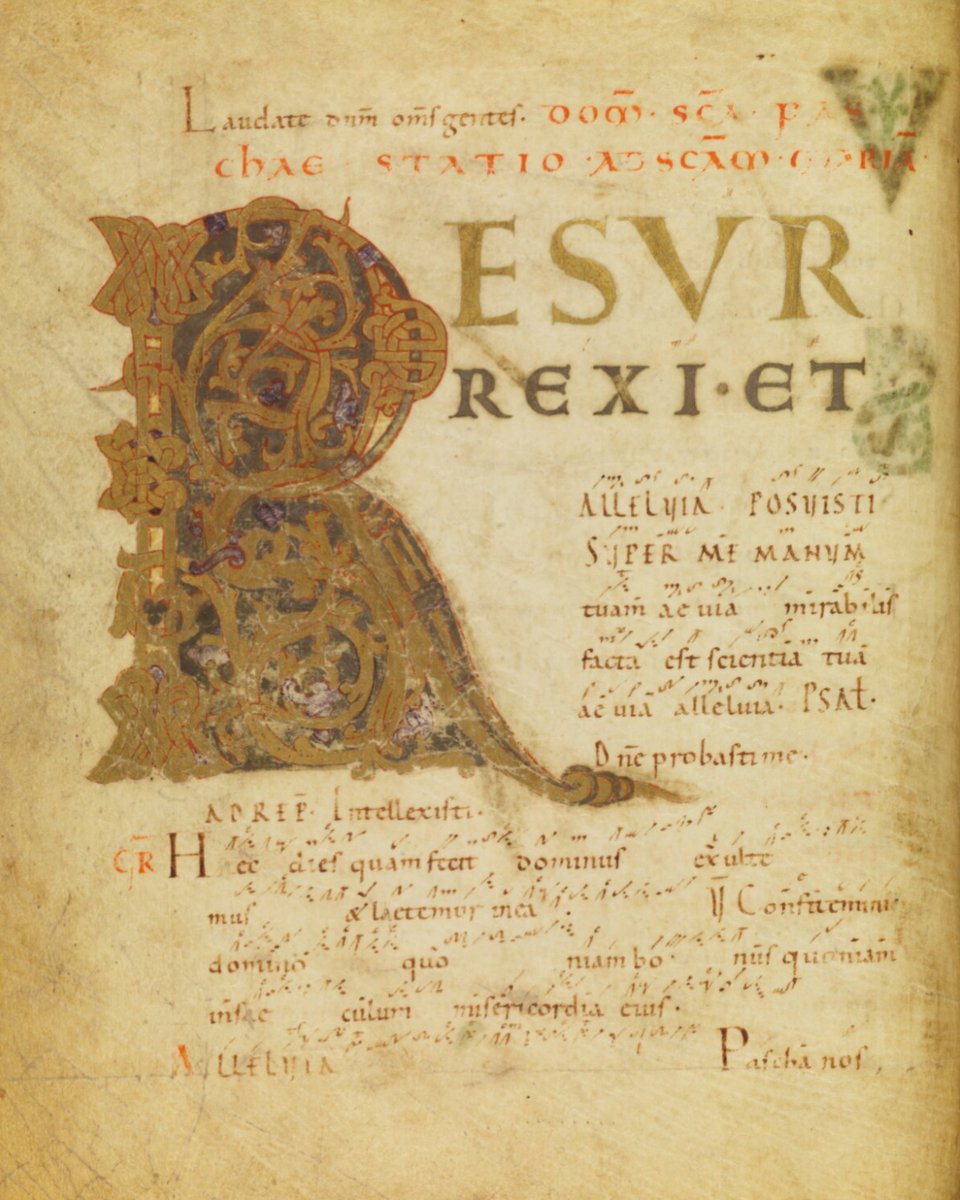 Laudate dnm̄ om̄s gentes. DOM̄. SC̄A. PAS
CHAE STATIO. AD SC̄AM. MARIĀ.
RESVR
REXI. ET
ALLELUIA POSUISTI
SUPER ME MANUM
tuam̄ ae uia mirabilis
facta est scientiā tuā
ae uiā alleluia. PSAL.
Dn̄e probasti me.
AD REP̄. Intellexisti.
GR̄ Haec dies quam fecit dominus exulte
mus & laetemur in ea V Confitemini
domino quo niam bo nus quoniam
in sae culum misericordia eius.
ALLELUIA Pascha nos